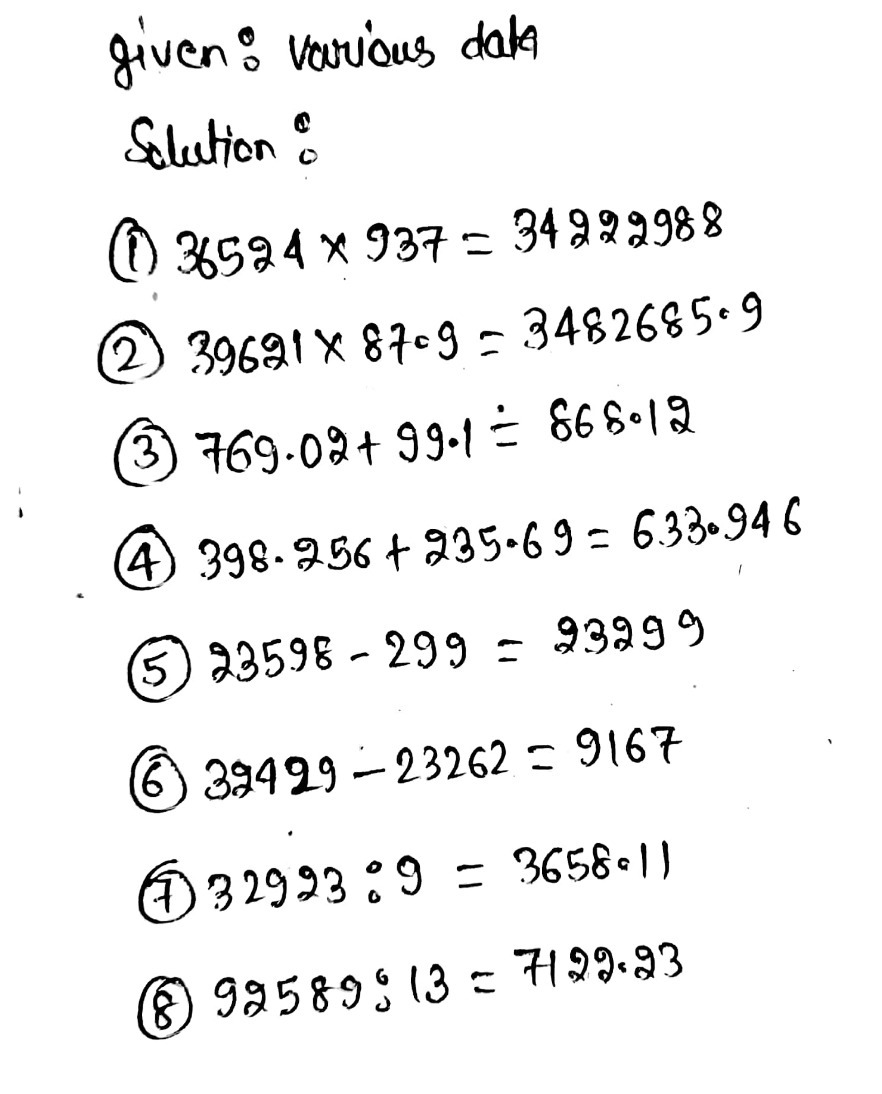 given: various data
Solution:
① 36524 × 937 = 34222988
② 39621 × 87.9 = 3482685.9
③ 769.02 + 99.1 = 868.12
④ 398.256 + 235.69 = 633.946
⑤ 23598 - 299 = 23299
⑥ 32429 - 23262 = 9167
⑦ 32923 : 9 = 3658.11
⑧ 92589 : 13 = 7122.23